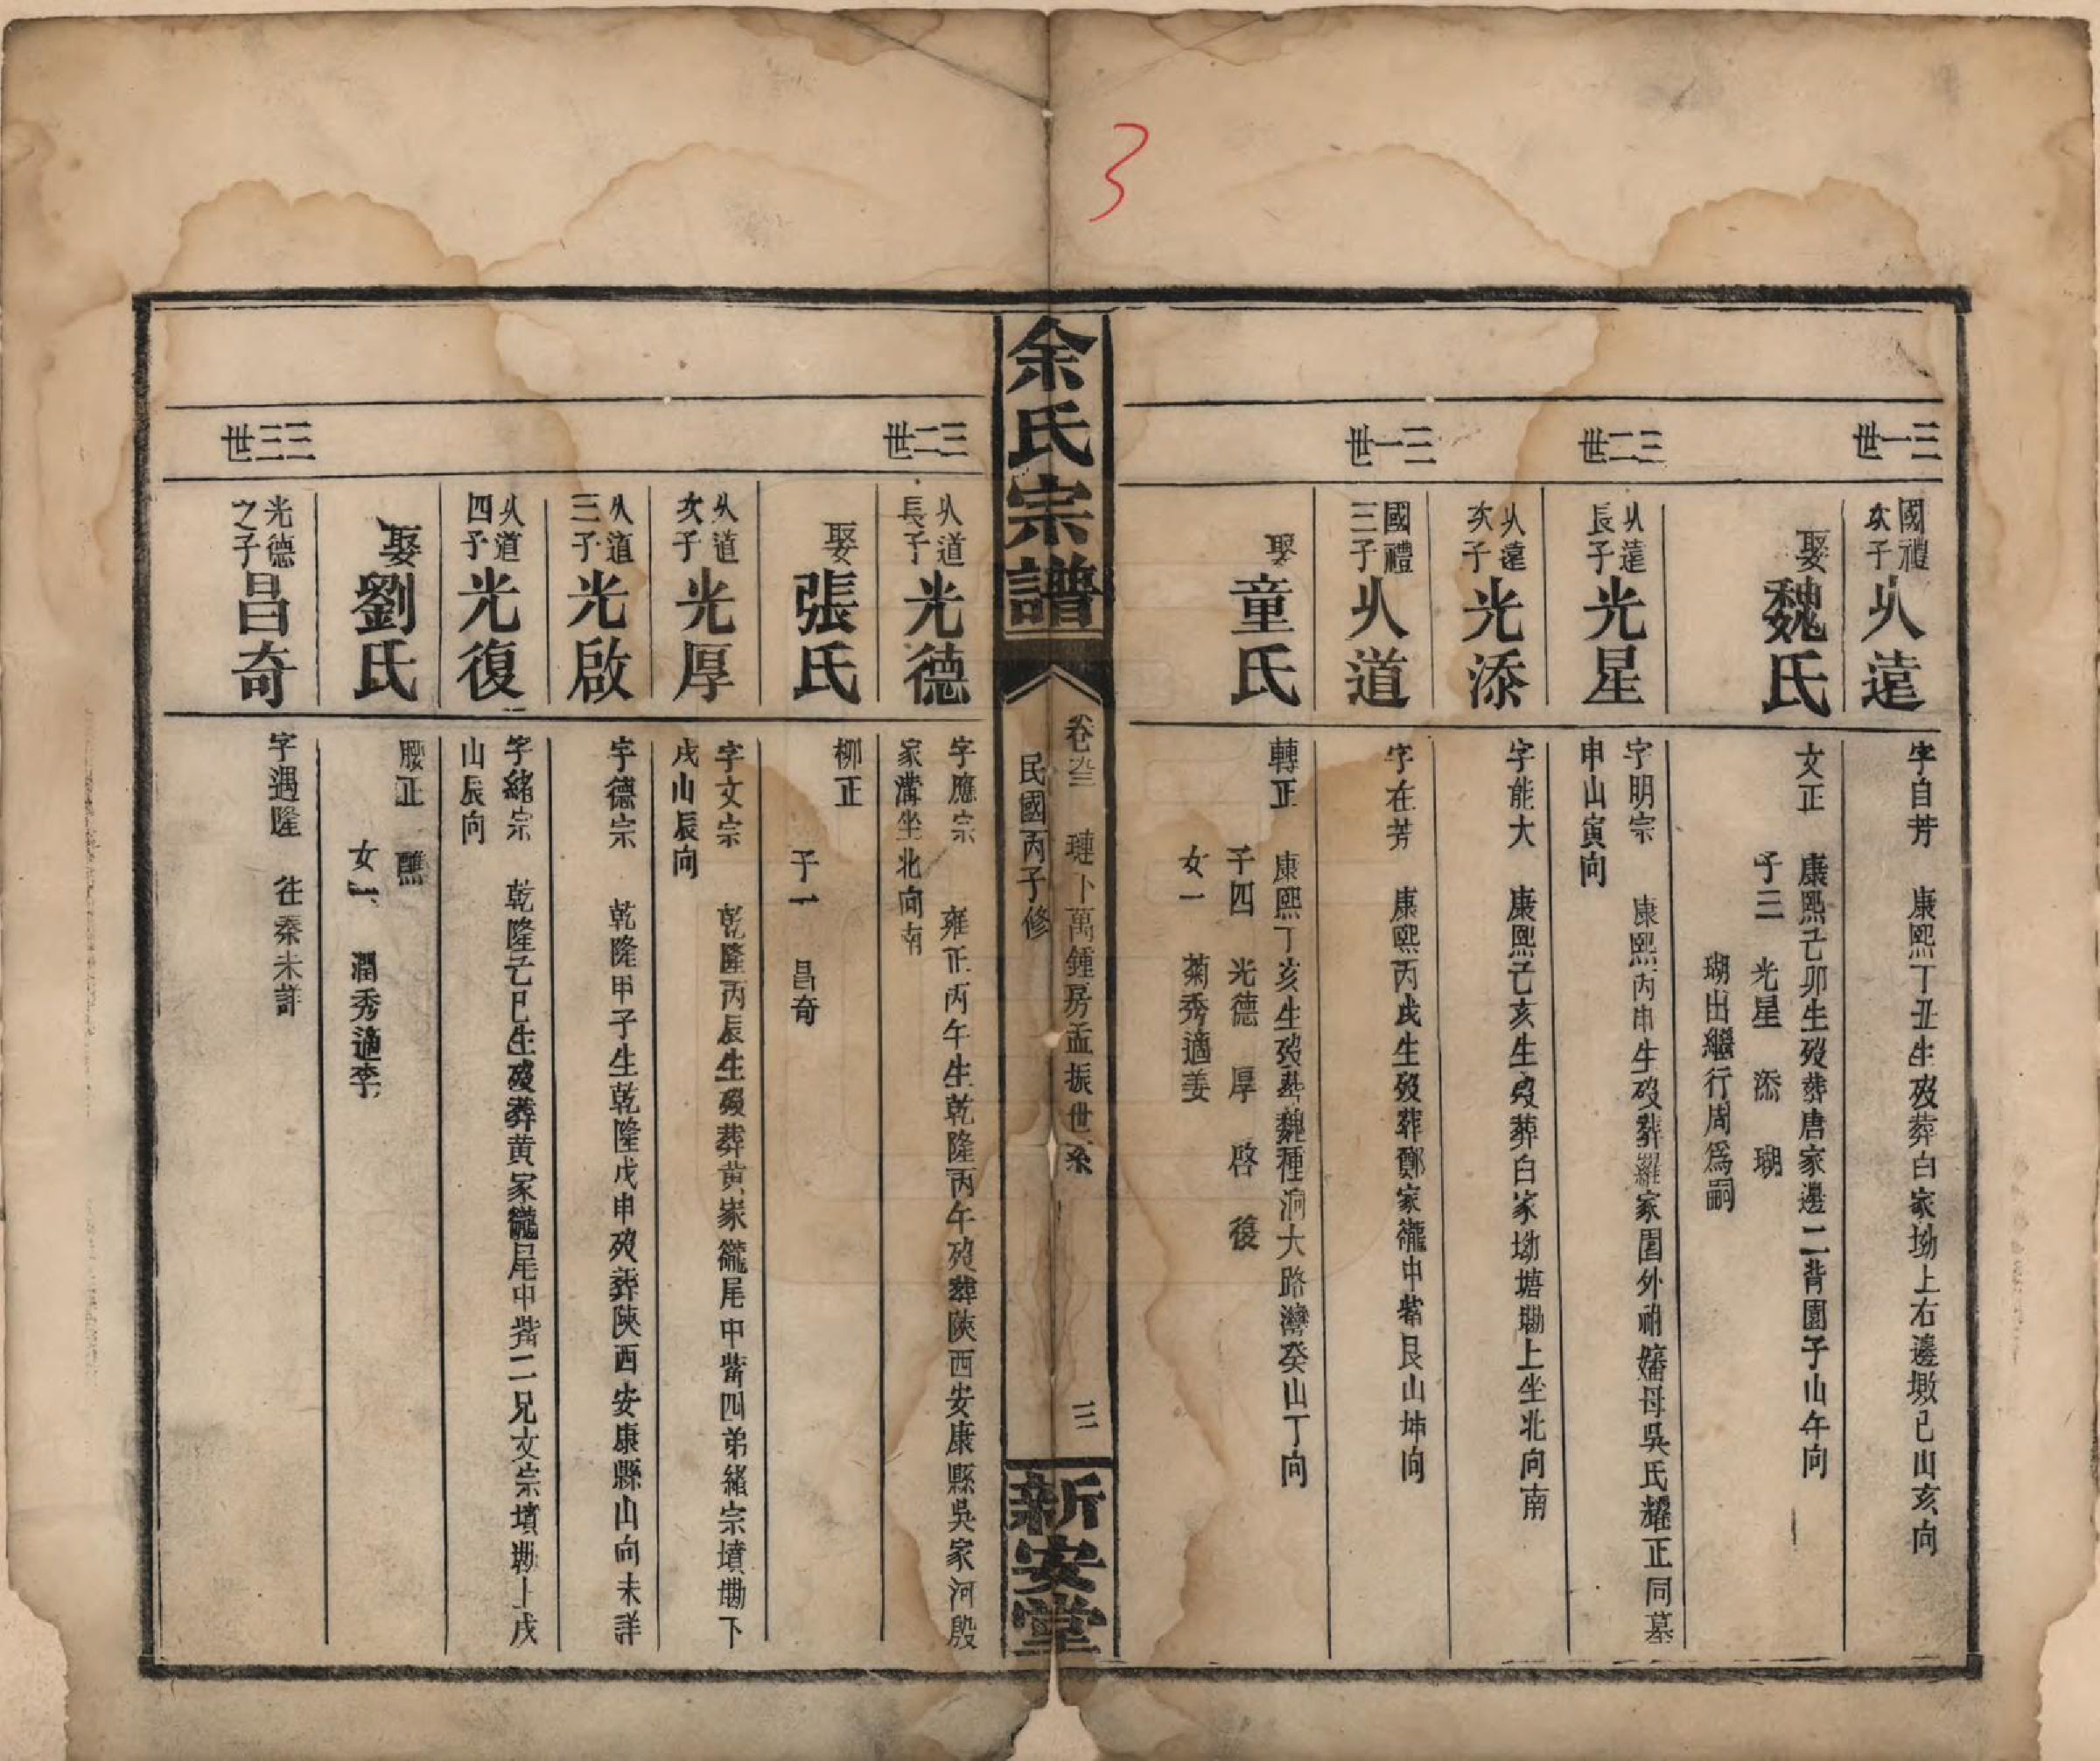 3
三一世
國禮次子
从遠
字自芳 康熙丁丑生歿葬白家坳上右邊墩巳山亥向
娶魏氏
文正 康熙己卯生歿葬唐家邊二背園子山午向
子三 光星 添 瑚
瑚出繼行周爲嗣
三二世
从遠長子
光星
字明宗 康熙丙申生歿葬羅家園外祔嬸母吳氏耀正同墓
申山寅向
从遠次子
光添
字能大 康熙己亥生歿葬白家坳塘墈上坐北向南
三一世
國禮三子
从道
字在芳 康熙丙戌生歿葬鄭家巃中嘴艮山坤向
娶童氏
轉正 康熙丁亥生歿葬魏種洞大路灣癸山丁向
子四 光德 厚 啓 復
女一 菊秀適姜
余氏宗譜
卷 璉卜萬鍾房孟振世系 三
民國丙子修
新安堂
三二世
从道長子
光德
字應宗 雍正丙午生乾隆丙午歿葬陝西安康縣吳家河殷
家溝坐北向南
娶張氏
柳正
子一 昌奇
从道次子
光厚
字文宗 乾隆丙辰生歿葬黄家巃尾中嘴四弟緒宗墳墈下
戌山辰向
从道三子
光啟
字德宗 乾隆甲子生乾隆戊申歿葬陝西安康縣山向未詳
从道四子
光復
字緒宗 乾隆己巳生歿葬黄家巃尾中嘴二兄文宗墳墈上戌
山辰向
娶劉氏
腰正 醮
女一 潤秀適李
三三世
光德之子
昌奇
字遇隆 往秦未詳